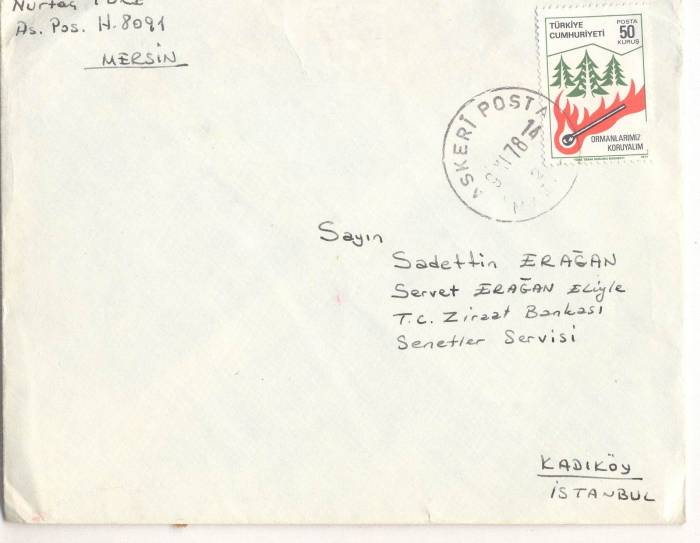 Nurtaş
As. Pos. H. 8091
MERSİN
TÜRKİYE CUMHURİYETİ
POSTA
50
KURUŞ
ORMANLARIMIZ
KORUYALIM
ASKERİ POSTA
78 14
Sayın
Sadettin ERAĞAN
Servet ERAĞAN Eliyle
T.C. Ziraat Bankası
Senetler Servisi
KADIKÖY
İSTANBUL